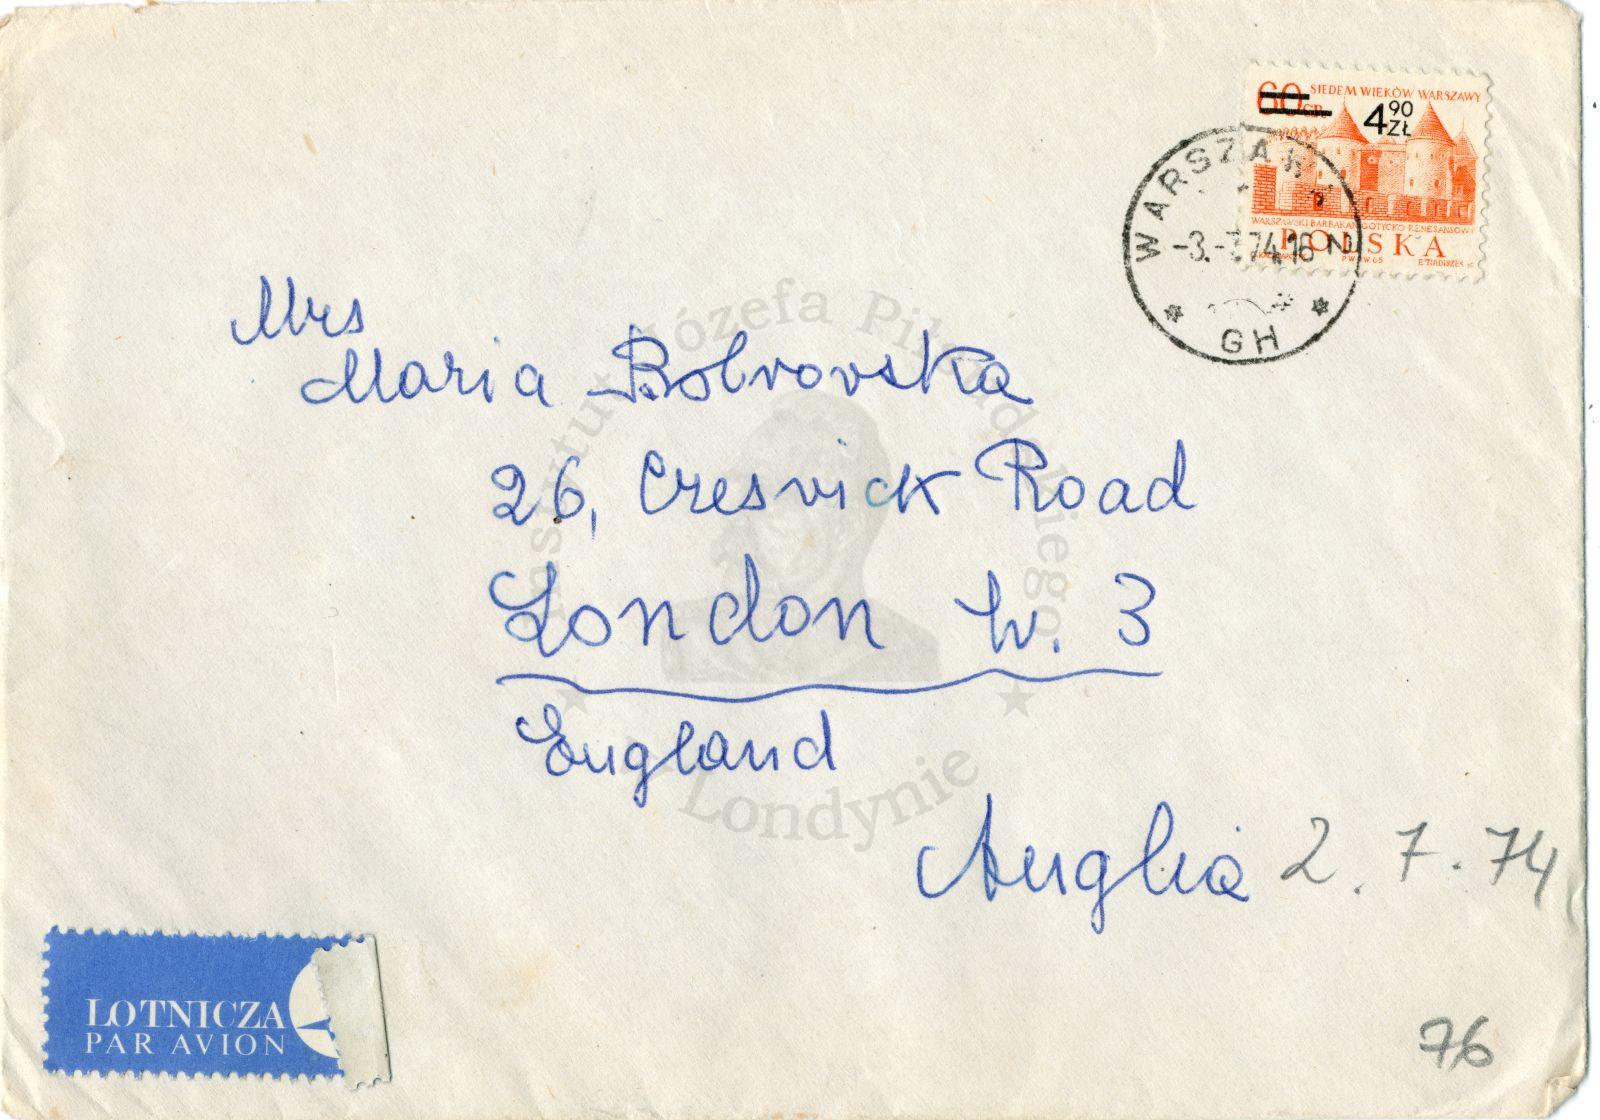 60 GR SIEDEM WIEKÓW WARSZAWY
4 90 ZŁ
WARSZAWSKI BARBAKAN GOTYCKO-RENESANSOWY
POLSKA
PWPW 65
WARSZAWA 2
-3.-7.74.16
* GH *
Mrs
Maria Bobrovska
26, Cresvick Road
London W. 3
England
Anglia 2.7.74
76
LOTNICZA
PAR AVION
Instytut Józefa Piłsudskiego
w Londynie